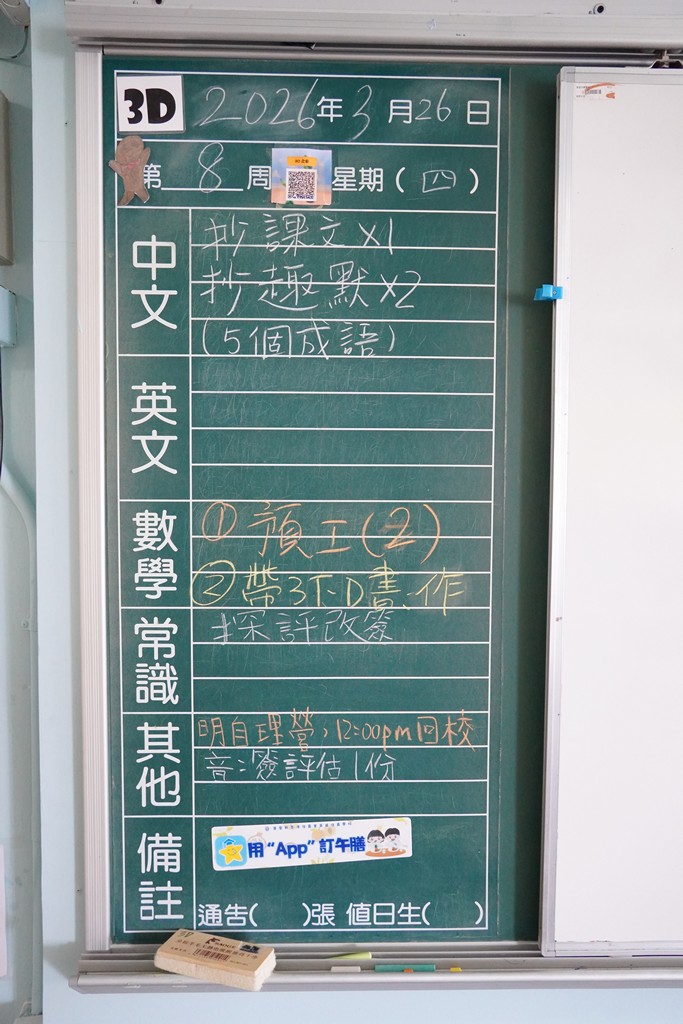 3D 2026年3月26日
第8周 星期(四)
中文
抄課文x1
抄趣默x2
(5個成語)
英文
數學
①預工(2)
②帶3T-D書,作
常識
探評改簽
其他
明自理營,12:00pm回校
音:簽評估1份
備註
用“App”訂午膳
通告( )張 值日生( )